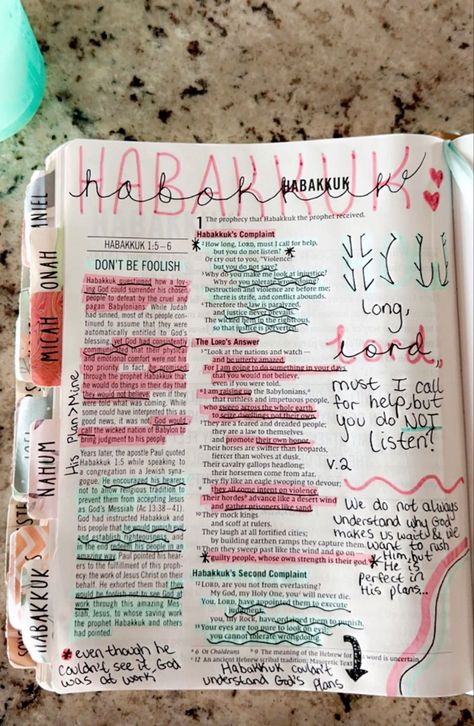 HABAKKUK
habakkuk
HABAKKUK
1 The prophecy that Habakkuk the prophet received.
HABAKKUK 1:5–6
DON'T BE FOOLISH
Habakkuk questioned how a loving
God could surrender his chosen
people to defeat by the cruel and
pagan Babylonians. While Judah
had sinned, most of its people continued
to assume that they were
automatically entitled to God's
blessing, yet God had consistently
communicated that their physical
and emotional comfort were not his
top priority. In fact, he
through the prophet Habakkuk that
he would do things in their day that
they would not believe, even if they
were told what was coming. While
some could have interpreted this as
good news, it was not. God would
call the wicked nation of Babylon to
bring judgment to his people.
Years later, the apostle Paul quoted
Habakkuk 1:5 while speaking to the
congregation in a Jewish synagogue.
He encouraged his hearers
not to allow religious tradition to
prevent them from accepting Jesus
as God's Messiah (Ac 13:38–41).
God had instructed Habakkuk and
his people that he would punish sin
and establish righteousness, and
in the end redeem his people in an
amazing way. Paul pointed his hearers
to the fulfillment of this prophecy:
the work of Jesus Christ on their
behalf. He exhorted them that they
would be foolish not to see God at
work through this amazing Messiah,
Jesus, to whose saving work
the prophet Habakkuk and others
had pointed.
Habakkuk's Complaint
2 How long, LORD, must I call for help,
but you do not listen?
Or cry out to you, "Violence!"
but you do not save?
3 Why do you make me look at injustice?
Why do you tolerate wrongdoing?
Destruction and violence are before me;
there is strife, and conflict abounds.
4 Therefore the law is paralyzed,
and justice never prevails.
The wicked hem in the righteous,
so that justice is perverted.
The LORD's Answer
5 "Look at the nations and watch—
and be utterly amazed.
For I am going to do something in your days
that you would not believe,
even if you were told.
6 I am raising up the Babylonians,
that ruthless and impetuous people,
who sweep across the whole earth
to seize dwellings not their own.
7 They are a feared and dreaded people;
they are a law to themselves
and promote their own honor.
8 Their horses are swifter than leopards,
fiercer than wolves at dusk.
Their cavalry gallops headlong;
their horsemen come from afar.
They fly like an eagle swooping to devour;
9 they all come intent on violence.
Their hordes advance like a desert wind
and gather prisoners like sand.
10 They mock kings
and scoff at rulers.
They laugh at all fortified cities;
by building earthen ramps they capture them.
11 Then they sweep past like the wind and go on—
guilty people, whose own strength is their god."
Habakkuk's Second Complaint
12 LORD, are you not from everlasting?
My God, my Holy One, you will never die.
You, LORD, have appointed them to execute
judgment;
you, my Rock, have ordained them to punish.
13 Your eyes are too pure to look on evil;
you cannot tolerate wrongdoing.
6 Or Chaldeans 9 The meaning of the Hebrew for this word is uncertain.
12 An ancient Hebrew scribal tradition; Masoretic Text
Long,
Lord,,
must I call
for help, but
you do NOT
listen?
V. 2
We do not always
understand why God
makes us wait & we
want to rush
Him, but
He is
perfect in
His plans...
His Plan > Mine
* even though he
couldn't see it, God
was at work
Habakkuk couldn't
understand God's Plans
JONAH
MICAH
NAHUM
HABAKKUK